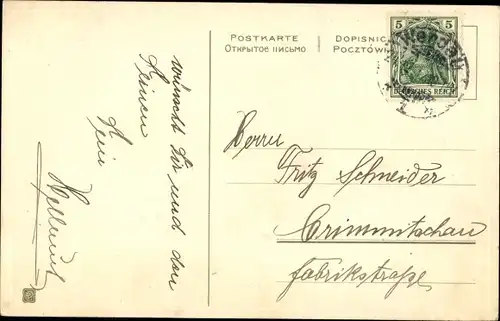 POSTKARTE
ОТКРЫТОЕ ПИСЬМО
DOPISNIC
POCZTÓW
5 5
DEUTSCHES REICH
wünscht Dir und den
Deinen
Dein
Hellmut
Herrn
Fritz Schneider
Crimmitschau
Fabrikstraße